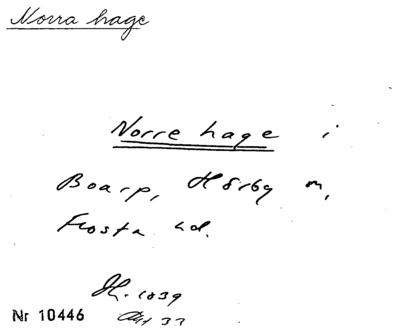 Norra hage
Norre hage i
Boarp, Hörby sn,
Frosta hd.
1039
Nr 10446